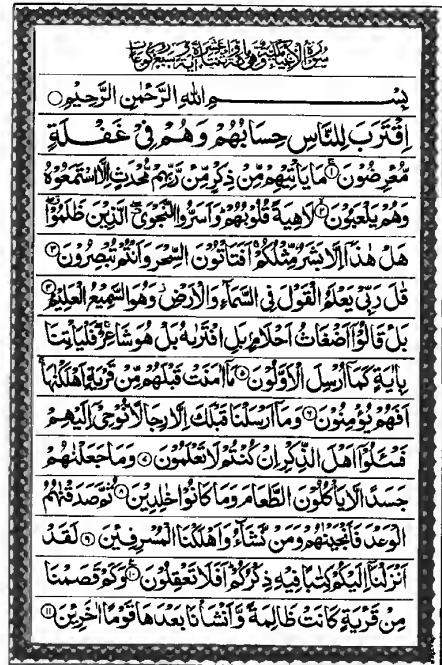 سُوْرَةُ الْاَنْبِيَاءِ مَكِّيَّةٌ وَّهِىَ
بِسْمِ اللهِ الرَّحْمٰنِ الرَّحِيْمِ ○
اِقْتَرَبَ لِلنَّاسِ حِسَابُهُمْ وَهُمْ فِىْ غَفْلَةٍ
مُّعْرِضُوْنَ ۚ۝۱ مَا يَاْتِيْهِمْ مِّنْ ذِكْرٍ مِّنْ رَّبِّهِمْ مُّحْدَثٍ اِلَّا اسْتَمَعُوْهُ
وَهُمْ يَلْعَبُوْنَ ۙ۝۲ لَاهِيَةً قُلُوْبُهُمْ ؕ وَاَسَرُّوا النَّجْوَى ۖ الَّذِيْنَ ظَلَمُوْا ۖ
هَلْ هٰذَاۤ اِلَّا بَشَرٌ مِّثْلُكُمْ ۚ اَفَتَاْتُوْنَ السِّحْرَ وَاَنْتُمْ تُبْصِرُوْنَ ۝۳
قٰلَ رَبِّىْ يَعْلَمُ الْقَوْلَ فِى السَّمَآءِ وَالْاَرْضِ ؗ وَهُوَ السَّمِيْعُ الْعَلِيْمُ ۝۴
بَلْ قَالُوْۤا اَضْغَاثُ اَحْلَامٍۭ بَلِ افْتَرٰىهُ بَلْ هُوَ شَاعِرٌ ۚۖ فَلْيَاْتِنَا
بِاٰيَةٍ كَمَاۤ اُرْسِلَ الْاَوَّلُوْنَ ۝۵ مَاۤ اٰمَنَتْ قَبْلَهُمْ مِّنْ قَرْيَةٍ اَهْلَكْنٰهَا ۚ
اَفَهُمْ يُؤْمِنُوْنَ ۝۶ وَمَاۤ اَرْسَلْنَا قَبْلَكَ اِلَّا رِجَالًا نُّوْحِىْۤ اِلَيْهِمْ
فَسْئَلُوْۤا اَهْلَ الذِّكْرِ اِنْ كُنْتُمْ لَا تَعْلَمُوْنَ ۝۷ وَمَا جَعَلْنٰهُمْ
جَسَدًا لَّا يَاْكُلُوْنَ الطَّعَامَ وَمَا كَانُوْا خٰلِدِيْنَ ۝۸ ثُمَّ صَدَقْنٰهُمُ
الْوَعْدَ فَاَنْجَيْنٰهُمْ وَمَنْ نَّشَآءُ وَاَهْلَكْنَا الْمُسْرِفِيْنَ ۝۹ لَقَدْ
اَنْزَلْنَاۤ اِلَيْكُمْ كِتٰبًا فِيْهِ ذِكْرُكُمْ ؕ اَفَلَا تَعْقِلُوْنَ ۠۝۱۰ وَكَمْ قَصَمْنَا
مِنْ قَرْيَةٍ كَانَتْ ظَالِمَةً وَّاَنْشَاْنَا بَعْدَهَا قَوْمًا اٰخَرِيْنَ ۝۱۱